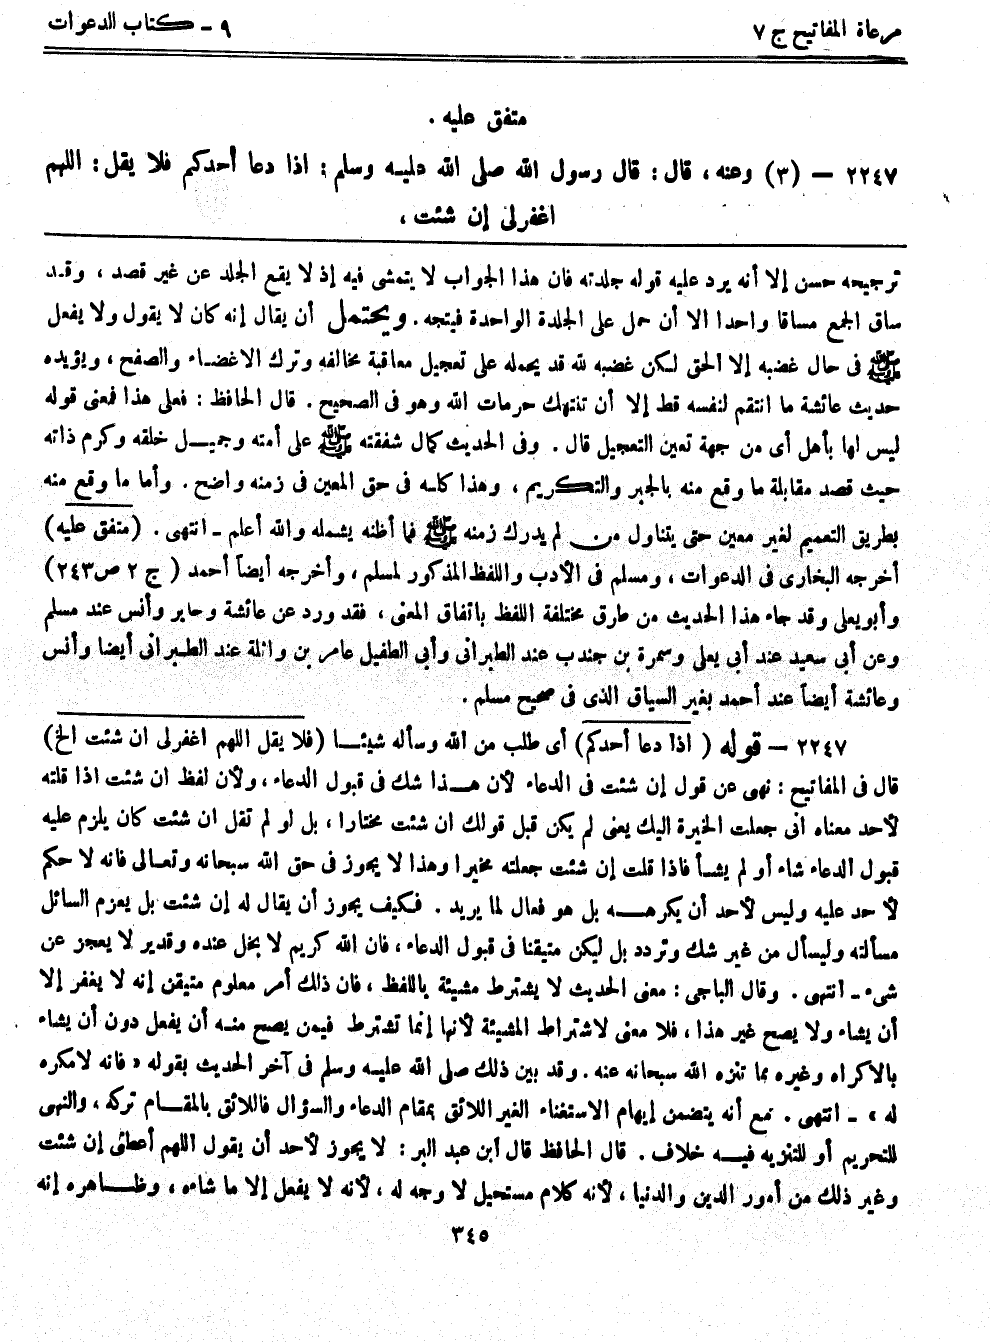 مرعاة المفاتيح ج ٧
٩ - كتاب الدعوات
متفق عليه .
٢٢٤٧ — (٣) وعنه ، قال : قال رسول الله صلى الله عليه وسلم : اذا دعا أحدكم فلا يقل : اللهم
اغفرلى إن شئت ،
ترجيحه حسن إلا أنه يرد عليه قوله جلدته فان هذا الجواب لا يتمشى فيه إذ لا يقع الجلد عن غير قصد ، وقد
ساق الجمع مساقا واحدا الا أن حمل على الجلدة الواحدة فيتجه . ويحتمل أن يقال إنه كان لا يقول ولا يفعل
ﷺ فى حال غضبه إلا الحق لكن غضبه لله قد يحمله على تعجيل معاقبة مخالفه وترك الاغضاء والصفح ، ويؤيده
حديث عائشة ما انتقم لنفسه قط إلا أن تنتهك حرمات الله وهو فى الصحيح . قال الحافظ : فعلى هذا فمعنى قوله
ليس لها بأهل أى من جهة تعين التعجيل قال . وفى الحديث كمال شفقته ﷺ على أمته وجميل خلقه وكرم ذاته
حيث قصد مقابلة ما وقع منه بالجبر والتكريم ، وهذا كله فى حق المعين فى زمنه واضح . وأما ما وقع منه
بطريق التعميم لغير معين حتى يتناول من لم يدرك زمنه ﷺ فما أظنه يشمله والله أعلم - انتهى . (متفق عليه)
أخرجه البخارى فى الدعوات ، ومسلم فى الأدب واللفظ المذكور لمسلم ، وأخرجه أيضاً أحمد ( ج ٢ ص ٢٤٣)
وأبويعلى وقد جاء هذا الحديث من طرق مختلفة اللفظ باتفاق المعنى ، فقد ورد عن عائشة وجابر وأنس عند مسلم
وعن أبى سعيد عند أبى يعلى وسمرة بن جندب عند الطبرانى وأبى الطفيل عامر بن واثلة عند الطبرانى أيضا وأنس
وعائشة أيضاً عند أحمد بغير السياق الذى فى صحيح مسلم .
٢٢٤٧ — قوله ( اذا دعا أحدكم) أى طلب من الله وسأله شيئا (فلا يقل اللهم اغفرلى ان شئت الخ)
قال فى المفاتيح : نهى عن قول إن شئت فى الدعاء لأن هذا شك فى قبول الدعاء ، ولأن لفظ ان شئت اذا قلته
لأحد معناه انى جعلت الخيرة اليك يعنى لم يكن قبل قولك ان شئت مختارا ، بل لو لم تقل ان شئت كان يلزم عليه
قبول الدعاء شاء أو لم يشأ فاذا قلت إن شئت جعلته مخيرا وهذا لا يجوز فى حق الله سبحانه وتعالى فانه لا حكم
لأحد عليه وليس لأحد أن يكرهه بل هو فعال لما يريد . فكيف يجوز أن يقال له إن شئت بل يعزم السائل
مسألته وليسأل من غير شك وتردد بل ليكن متيقنا فى قبول الدعاء ، فان الله كريم لا بخل عنده وقدير لا يعجز عن
شىء - انتهى . وقال الباجى : معنى الحديث لا يشترط مشيئة باللفظ ، فان ذلك أمر معلوم متيقن إنه لا يغفر إلا
أن يشاء ولا يصح غير هذا ، فلا معنى لاشتراط المشيئة لأنها إنما تشترط فيمن يصح منه أن يفعل دون أن يشاء
بالاكراه وغيره مما تنزه الله سبحانه عنه . وقد بين ذلك صلى الله عليه وسلم فى آخر الحديث بقوله « فانه لامكره
له » - انتهى . تمع أنه يتضمن إيهام الاستغناء الغير اللائق بمقام الدعاء والسؤال فاللائق بالمقام تركه ، والنهى
للتحريم أو للتنزيه فيه خلاف . قال الحافظ قال ابن عبد البر : لا يجوز لأحد أن يقول اللهم أعطنى إن شئت
وغير ذلك من أمور الدين والدنيا ، لأنه كلام مستحيل لا وجه له ، لأنه لا يفعل إلا ما شاءه ، وظاهره إنه
٣٤٥